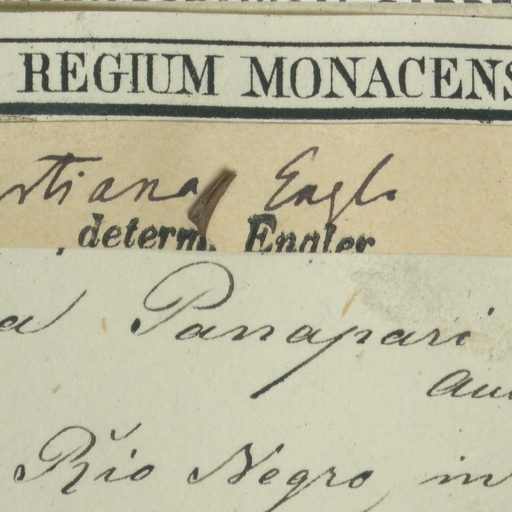 REGIUM MONACENS
rtiana Engl.
determ. Engler
a Panapari
Au
Rio Negro, in